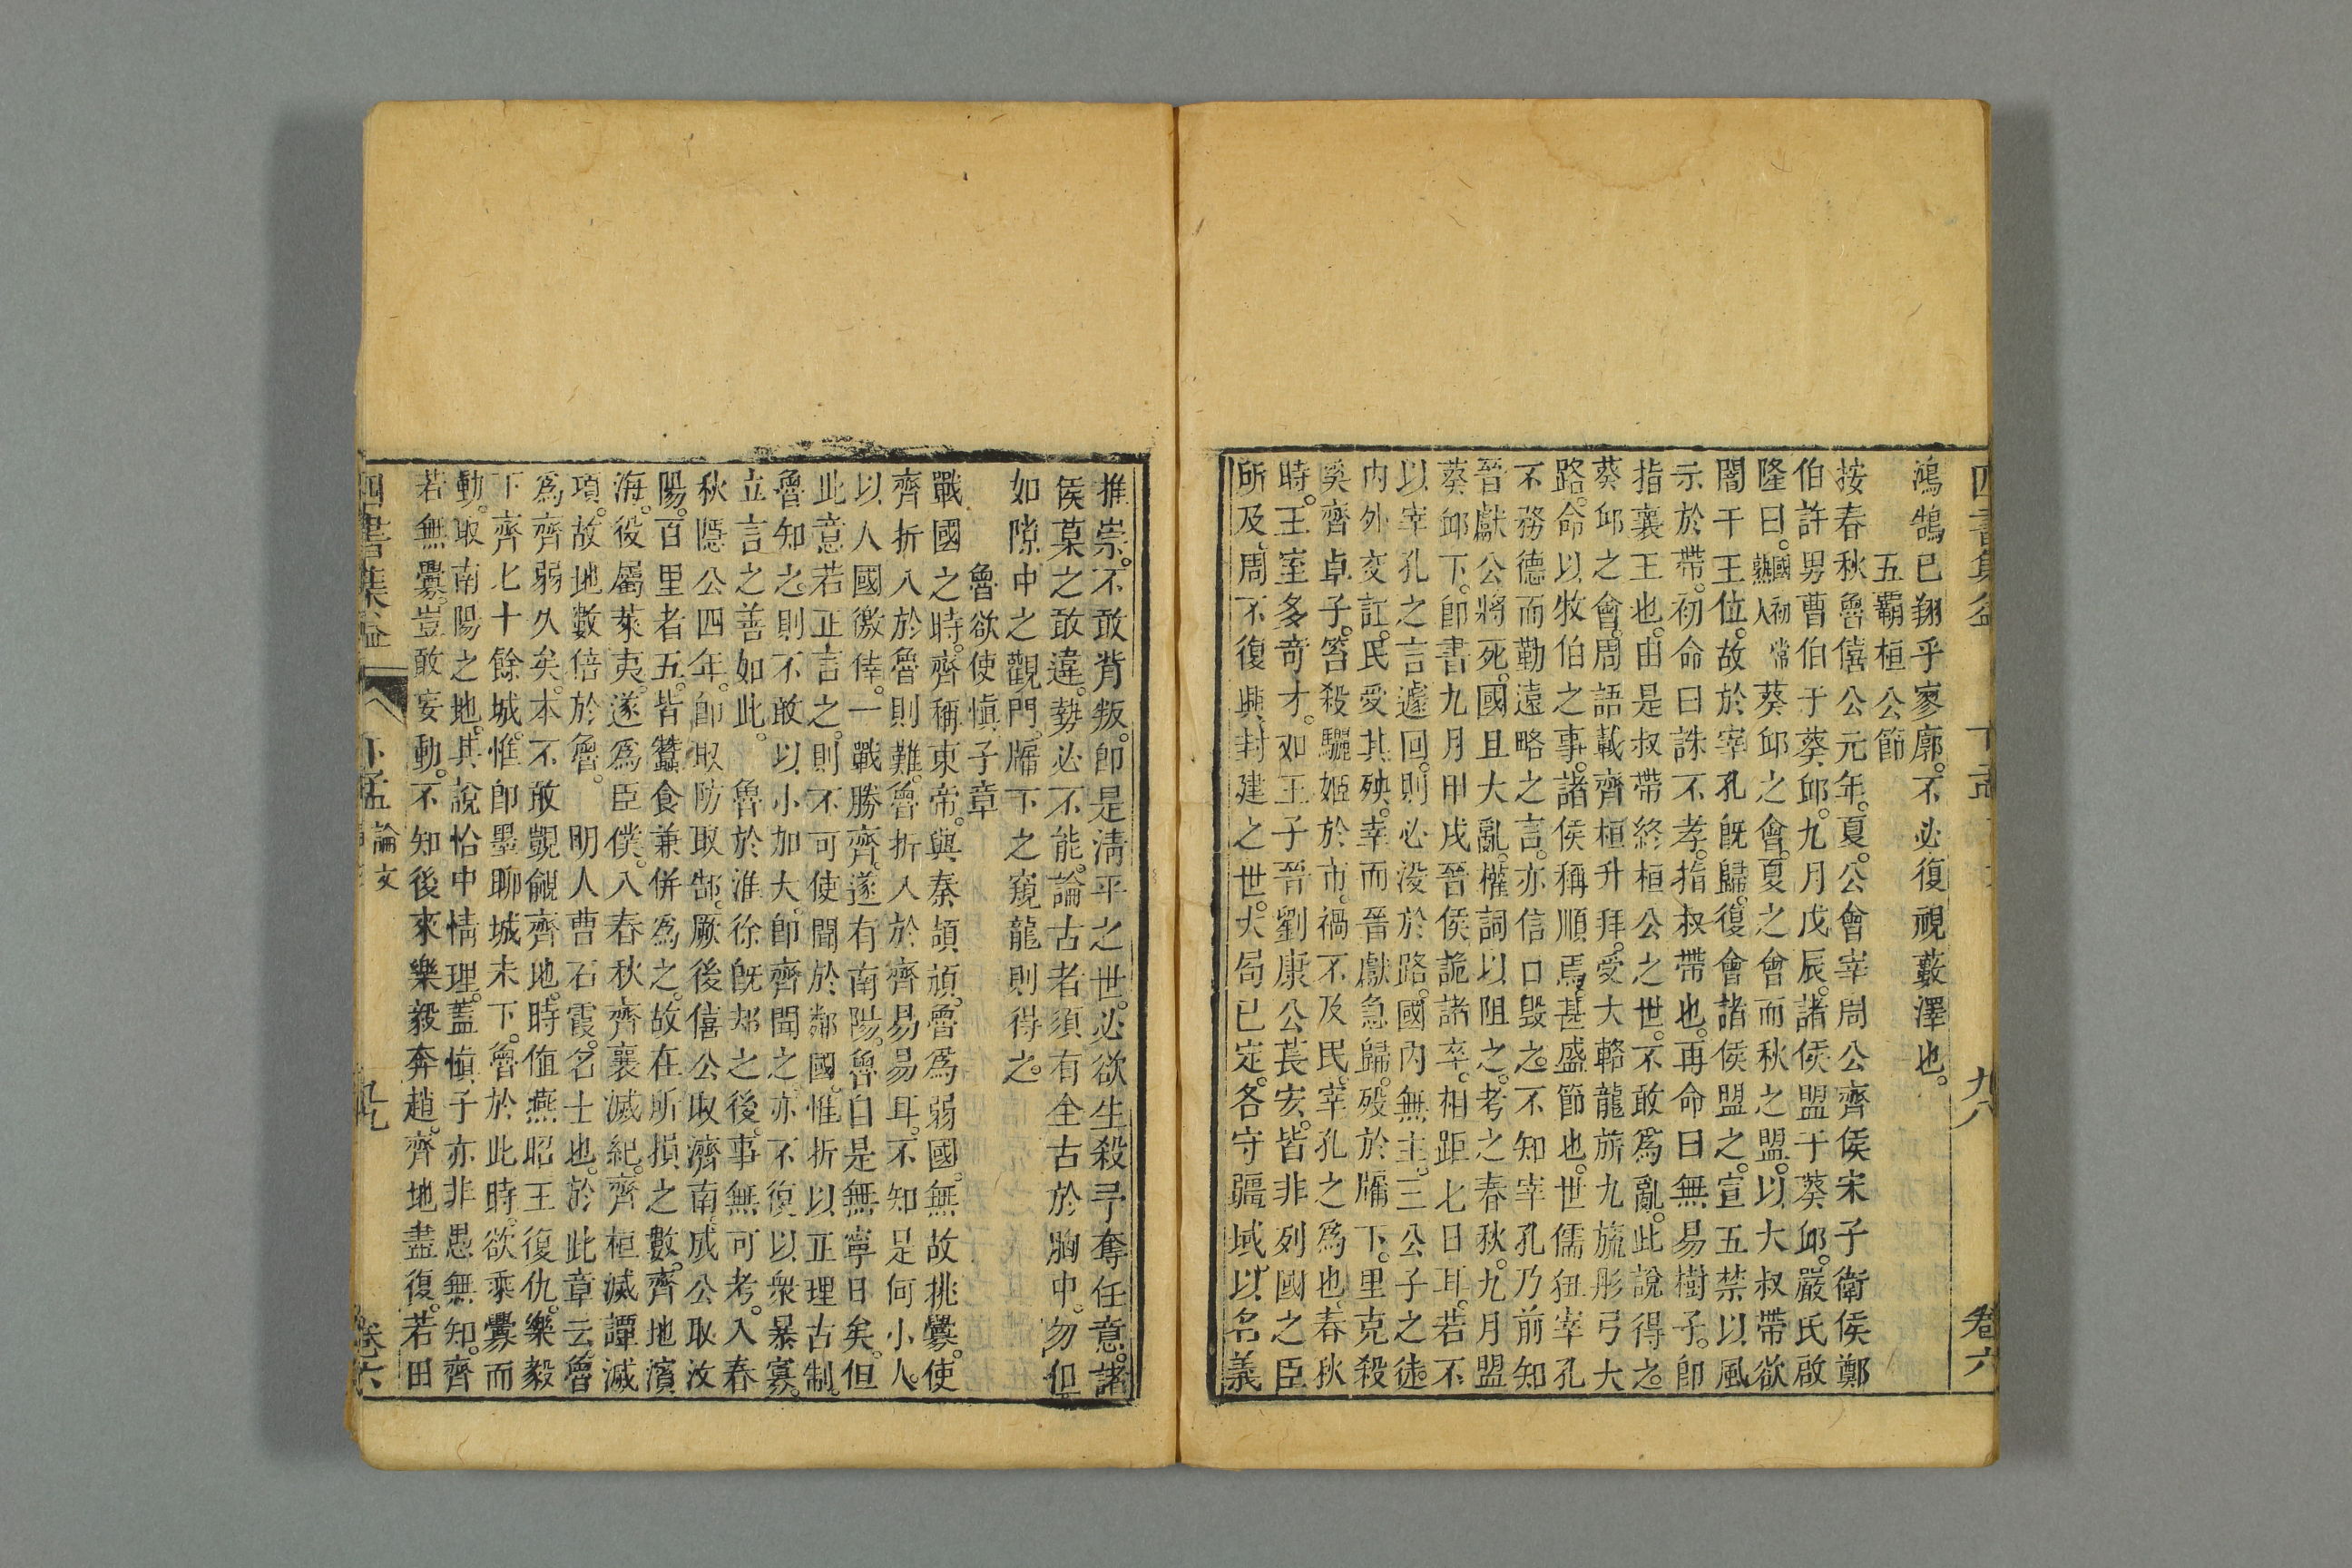 四書集益 下孟 九八 卷六
鴻鵠已翔乎寥廓。不必復視藪澤也。
五霸桓公節
按春秋魯僖公元年。夏。公會宰周公齊侯宋子衛侯鄭
伯許男曹伯于葵邱。九月戊辰。諸侯盟于葵邱。嚴氏啟
隆曰。國初常熟人葵邱之會。夏之會而秋之盟。以大叔帶欲
闇干王位。故於宰孔旣歸。復會諸侯盟之。宣五禁以風
示於帶。初命曰誅不孝。指叔帶也。再命曰無易樹子。卽
指襄王也。由是叔帶終桓公之世。不敢爲亂。此說得之。
葵邱之會。周語載齊桓升拜。受大輅龍旂九旒彤弓大
路。命以牧伯之事。諸侯稱順焉。甚盛節也。世儒狃宰孔
不務德而勤遠略之言。亦信口毀之。不知宰孔乃前知
晉獻公將死。國且大亂。權詞以阻之。考之春秋。九月盟
葵邱下。卽書九月甲戌晉侯詭諸卒。相距七日耳。若不
以宰孔之言遽回。則必没於路。國內無主。三公子之徒。
內外交訌。民受其殃。幸而晉獻急歸。殁於牖下。里克殺
奚齊卓子。笞殺驪姬於市。禍不及民。宰孔之爲也。春秋
時。王室多奇才。如王子晉劉康公萇宏。皆非列國之臣
所及。周不復興。封建之世。大局已定。各守疆域。以名義
推崇。不敢背叛。卽是淸平之世。必欲生殺予奪任意。諸
侯莫之敢違。勢必不能。論古者須有全古於胸中。勿但
如隙中之觀門。牖下之窺龍則得之。
魯欲使愼子章
戰國之時。齊稱東帝。與秦頡頏。魯爲弱國。無故挑釁。使
齊折入於魯則難。魯折入於齊易易耳。不知足何小人。
以人國徼倖。一戰勝齊。遂有南陽。魯自是無寧日矣。但
此意若正言之。則不可使聞於鄰國。惟折以正理古制。
魯知之。則不敢以小加大。卽齊聞之。亦不復以衆暴寡。
立言之善如此。 魯於淮徐旣郏之後。事無可考。入春
秋隱公四年。卽取防取郜。厥後僖公取濟南。成公取汶
陽。百里者五。皆蠶食兼併爲之。故在所損之數。齊地濱
海。役屬萊夷。遂爲臣僕。入春秋齊襄滅紀。齊桓滅譚滅
項。故地數倍於魯。 明人曹石霞。名士也。於此章云。魯
爲齊弱久矣。本不敢覬覦齊地。時値燕昭王復仇。樂毅
下齊七十餘城。惟卽墨聊城未下。魯於此時。欲乘釁而
動。取南陽之地。其說恰中情理。蓋愼子亦非愚無知。齊
若無釁。豈敢妄動。不知後來樂毅奔趙。齊地盡復。若田
四書集益 下孟 論文 九九 卷六